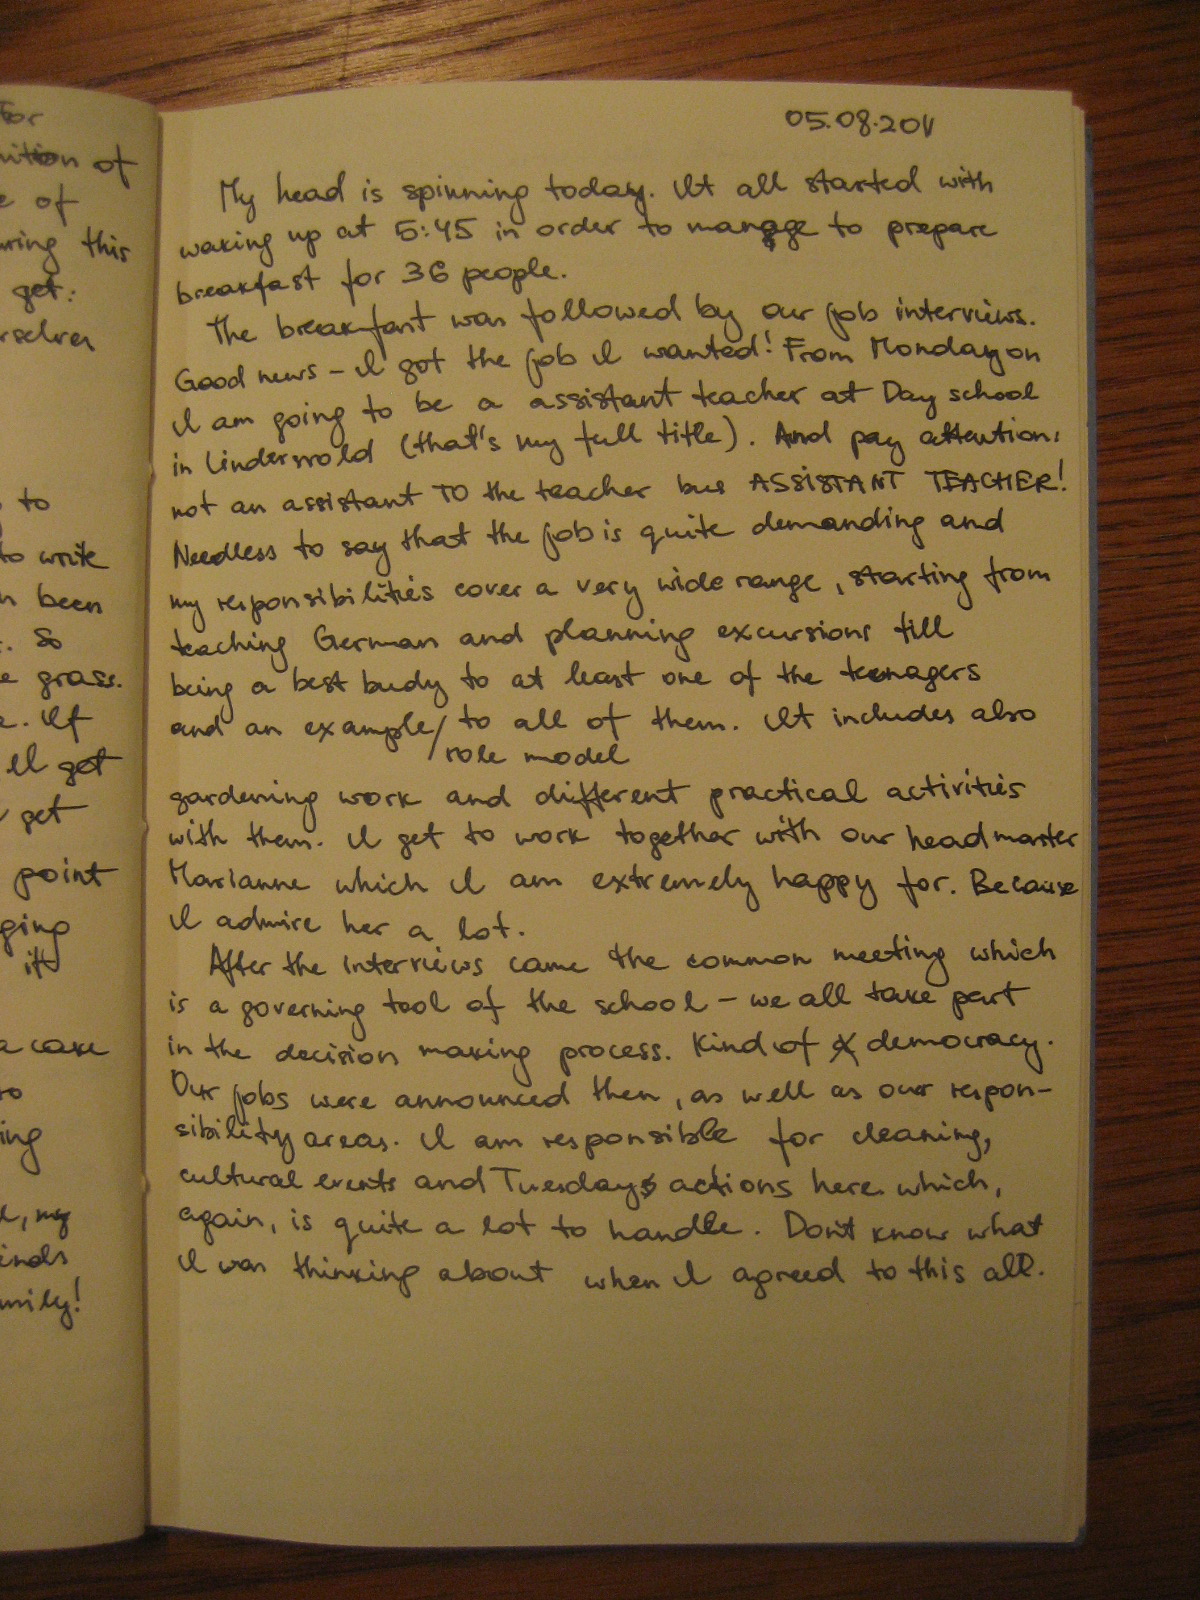 for
of
e of
uring this
get:
rselves
to
to write
n been
. So
e grass.
e. If
I get
get
point
ging
it
a care
ing
, my
inds
mily!
05.08.2011
My head is spinning today. It all started with
waking up at 5:45 in order to manage to prepare
breakfast for 36 people.
The breakfast was followed by our job interviews.
Good news – I got the job I wanted! From Monday on
I am going to be a assistant teacher at Day school
in Lindersvold (that's my full title). And pay attention:
not an assistant TO the teacher but ASSISTANT TEACHER!
Needless to say that the job is quite demanding and
my responsibilities cover a very wide range, starting from
teaching German and planning excursions till
being a best budy to at least one of the teenagers
and an example/ to all of them. It includes also
role model
gardening work and different practical activities
with them. I get to work together with our headmaster
Marianne which I am extremely happy for. Because
I admire her a lot.
After the interviews came the common meeting which
is a governing tool of the school – we all take part
in the decision making process. Kind of democracy.
Our jobs were announced then, as well as our respon-
sibility areas. I am responsible for cleaning,
cultural events and Tuesday actions here which,
again, is quite a lot to handle. Don't know what
I was thinking about when I agreed to this all.